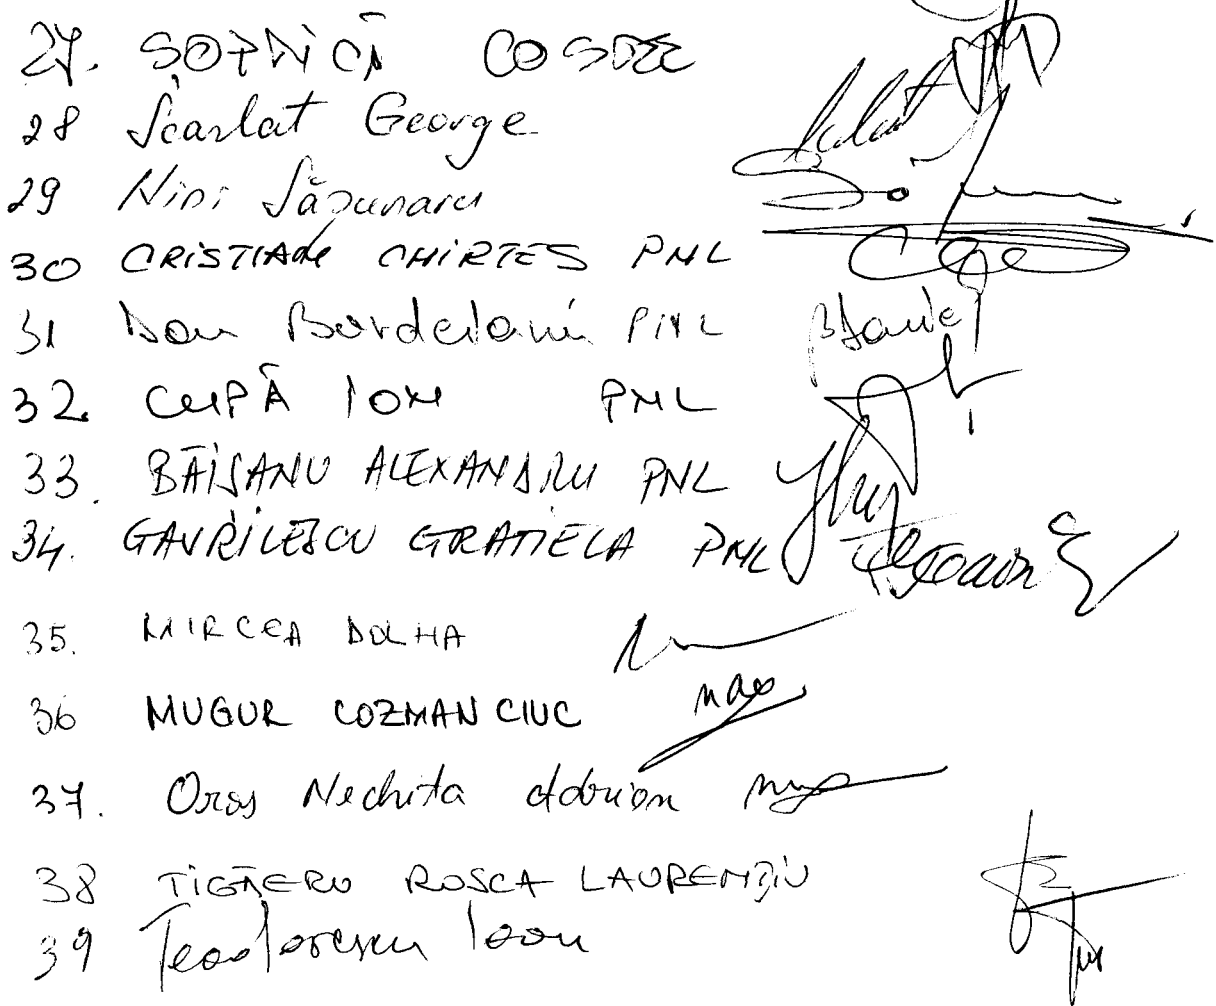 27. ȘOTÎNCĂ COSTEL
28 Scarlat George
29 Nini Săpunaru
30 CRISTIAN CHIRTEȘ PNL
31 Dan Bordeianu PNL
32 CUPĂ ION PNL
33. BĂIȘANU ALEXANDRU PNL
34. GAVRILESCU GRATIELA PNL
35. MIRCEA DOLHA
36 MUGUR COZMANCIUC
37. Oros Nechita Adrian
38 ȚIGĂERU ROȘCA LAURENȚIU
39 Teodorescu Ioan